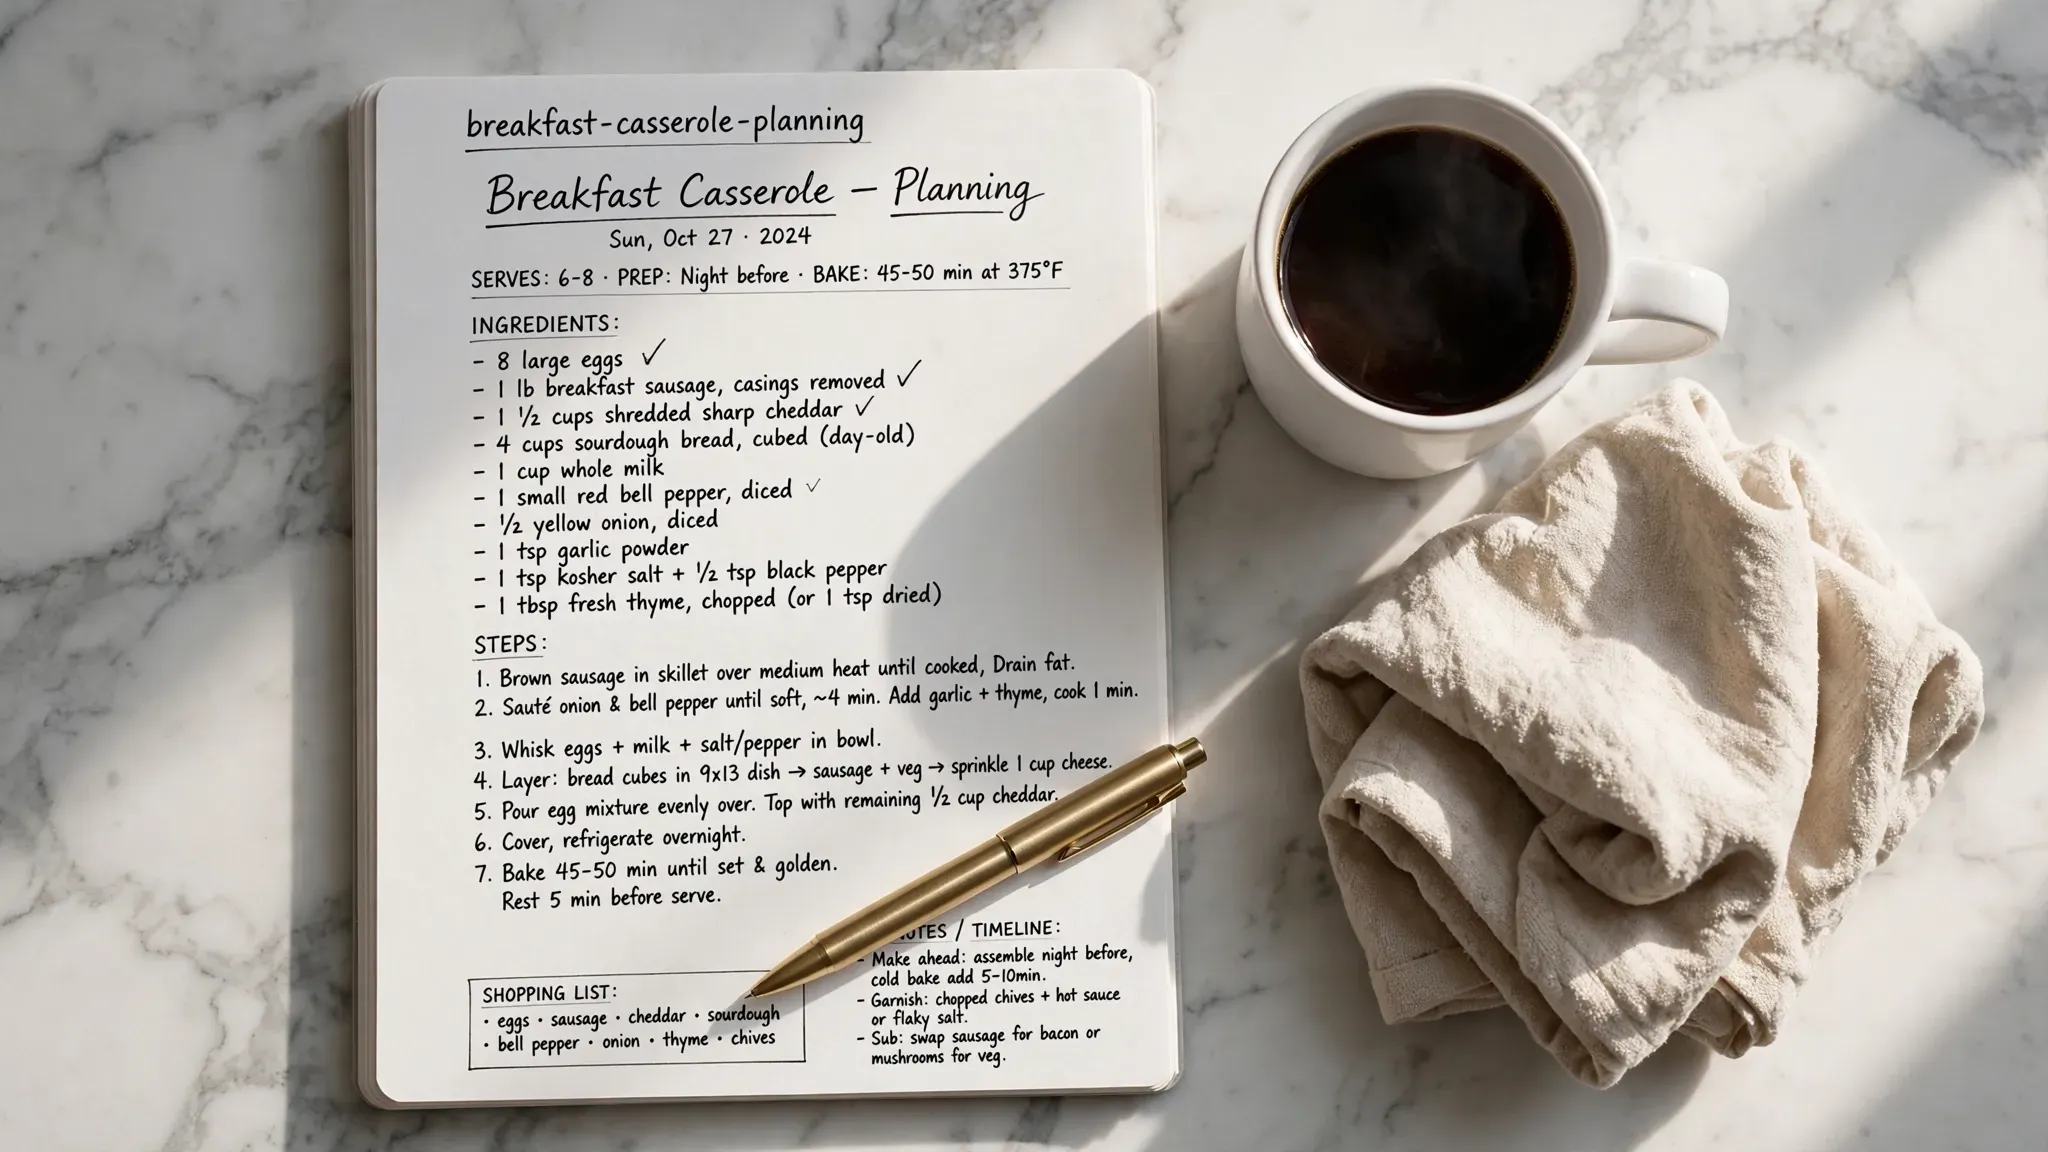 breakfast-casserole-planning
Breakfast Casserole – Planning
Sun, Oct 27 · 2024
SERVES: 6-8 · PREP: Night before · BAKE: 45-50 min at 375°F
INGREDIENTS:
- 8 large eggs ✓
- 1 lb breakfast sausage, casings removed ✓
- 1 ½ cups shredded sharp cheddar ✓
- 4 cups sourdough bread, cubed (day-old)
- 1 cup whole milk
- 1 small red bell pepper, diced ✓
- ½ yellow onion, diced
- 1 tsp garlic powder
- 1 tsp kosher salt + ½ tsp black pepper
- 1 tbsp fresh thyme, chopped (or 1 tsp dried)
STEPS:
1. Brown sausage in skillet over medium heat until cooked, Drain fat.
2. Sauté onion & bell pepper until soft, ~4 min. Add garlic + thyme, cook 1 min.
3. Whisk eggs + milk + salt/pepper in bowl.
4. Layer: bread cubes in 9x13 dish → sausage + veg → sprinkle 1 cup cheese.
5. Pour egg mixture evenly over. Top with remaining ½ cup cheddar.
6. Cover, refrigerate overnight.
7. Bake 45-50 min until set & golden.
Rest 5 min before serve.
SHOPPING LIST:
· eggs · sausage · cheddar · sourdough
· bell pepper · onion · thyme · chives
/ TIMELINE:
- Make ahead: assemble night before,
cold bake add 5-10min.
- Garnish: chopped chives + hot sauce
or flaky salt.
- Sub: swap sausage for bacon or
mushrooms for veg.